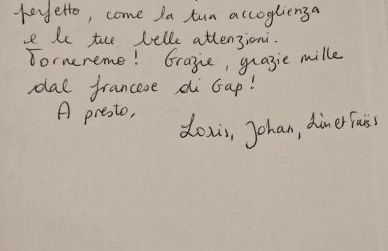 perfetto, come la tua accoglienza
e le tue belle attenzioni.
Torneremo! Grazie, grazie mille
dal francese di Gap!
A presto,
Loris, Johan,